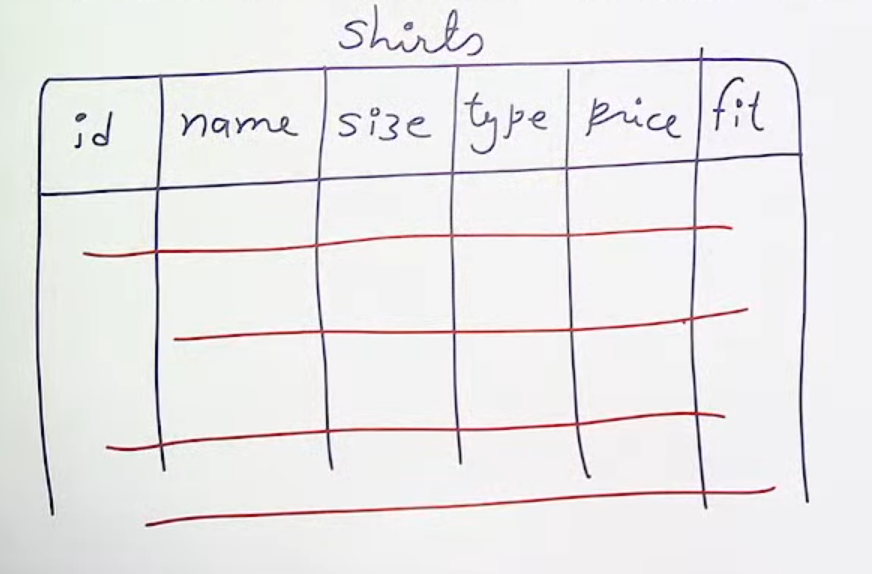 Shirts
id name size type price fit